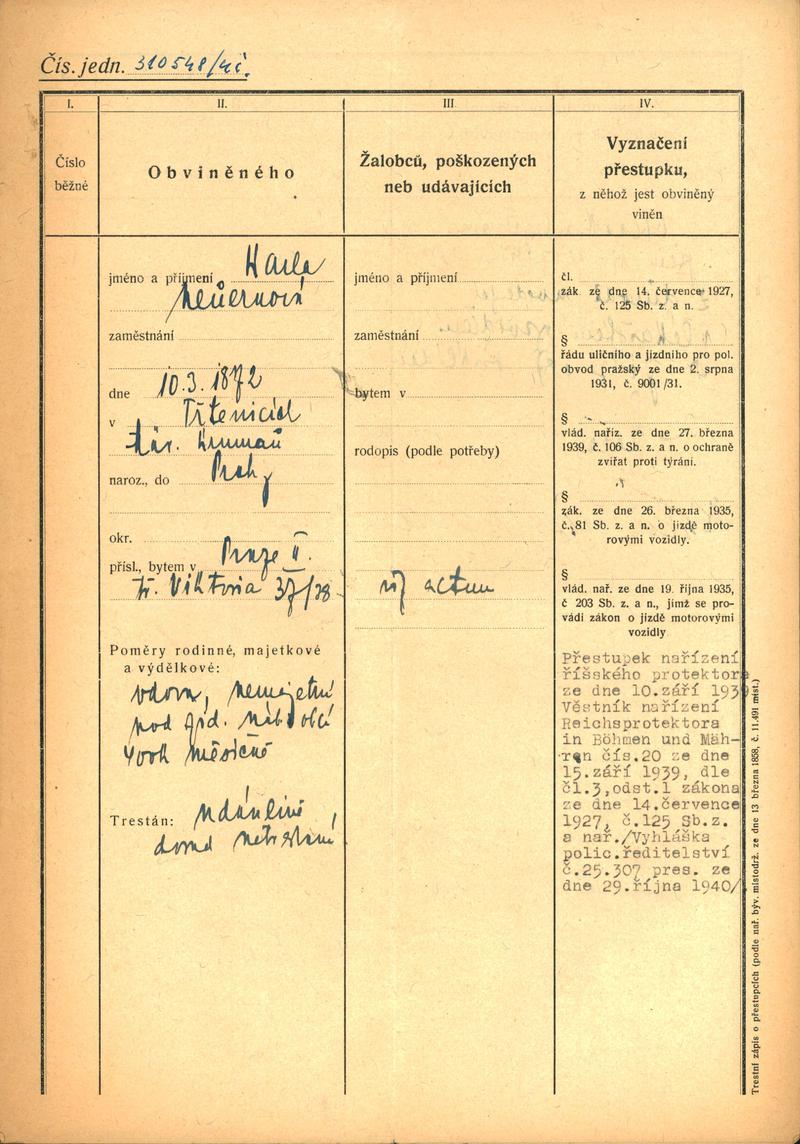 Čís. jedn. 310548/41
I.
Číslo
běžné
II.
Obviněného
III.
Žalobců, poškozených
neb udávajících
IV.
Vyznačení
přestupku,
z něhož jest obviněný
viněn
jméno a příjmení
zaměstnání
dne 10.3.1872
v
naroz., do
okr.
přísl., bytem v Praze II.
tř. Viktoria 37/
Poměry rodinné, majetkové
a výdělkové:
vdova, nemajetná
měsíčně
Trestán: údajně
dosud netrestaná
jméno a příjmení
zaměstnání
bytem v
rodopis (podle potřeby)
viz actum
čl.
zák. ze dne 14. července 1927,
č. 125 Sb. z. a n.
§
řádu uličního a jízdního pro pol.
obvod pražský ze dne 2. srpna
1931, č. 9001/31.
§
vlád. naříz. ze dne 27. března
1939, č. 106 Sb. z. a n. o ochraně
zvířat proti týrání.
§
zák. ze dne 26. března 1935,
č. 81 Sb. z. a n. o jízdě moto-
rovými vozidly.
§
vlád. nař. ze dne 19. října 1935,
č 203 Sb. z. a n., jímž se pro-
vádí zákon o jízdě motorovými
vozidly
Přestupek nařízení
říšského protektora
ze dne 10.září 1939
Věstník nařízení
Reichsprotektora
in Böhmen und Mäh-
ren čís.20 ze dne
15.září 1939, dle
čl.3,odst.1 zákona
ze dne 14.července
1927, č.125 Sb.z.
a nař./Vyhláška
polic.ředitelství
č.25.307 pres. ze
dne 29.října 1940/
Trestní zápis o přestupcích (podle nař. býv. místodrž. ze dne 13 března 1858, č. 11.491 míst.)